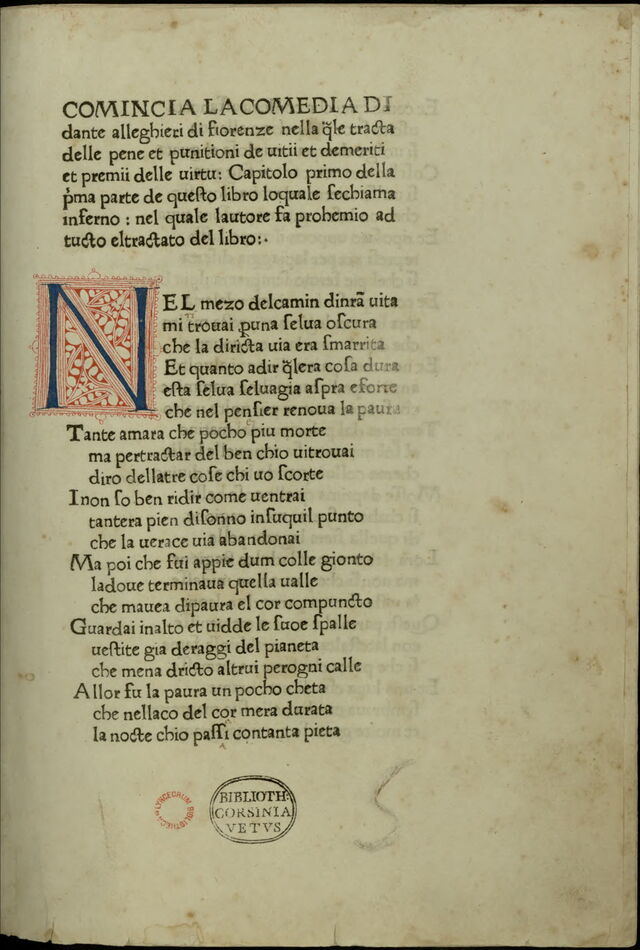 COMINCIA LACOMEDIA DI
dante alleghieri di fiorenze nella q̃le tracta
delle pene et punitioni de uitii et demeriti
et premii delle uirtu: Capitolo primo della
p̃ma parte de queſto libro loquale ſechiama
inferno : nel quale lautore fa prohemio ad
tucto eltractato del libro:·
NEL mezo delcamin dinrã uita
mi trouai ꝑuna ſelua oſcura
che la diricta uia era ſmarrita
Et quanto adir q̃lera coſa dura
eſta ſelua ſeluagia aſpra eforte
che nel penſier renoua la paura
Tante amara che pocho piu morte
ma pertractar del ben chio uitrouai
diro dellatre coſe chi uo ſcorte
Inon ſo ben ridir come uentrai
tantera pien diſonno inſuquil punto
che la uerace uia abandonai
Ma poi che fui appie dum colle gionto
ladoue terminaua quella ualle
che mauea dipaura el cor compuncto
Guardai inalto et uidde le ſuoe ſpalle
ueſtite gia deraggi del pianeta
che mena dricto altrui perogni calle
Allor fu la paura un pocho cheta
che nellaco del cor mera durata
la nocte chio paſſi contanta pieta
LYNCEORUM BIBLIOTHECA
BIBLIOTH:
CORSINIA
VETVS